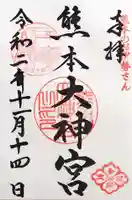 奉拝
熊本大神宮
令和二年十一月十四日